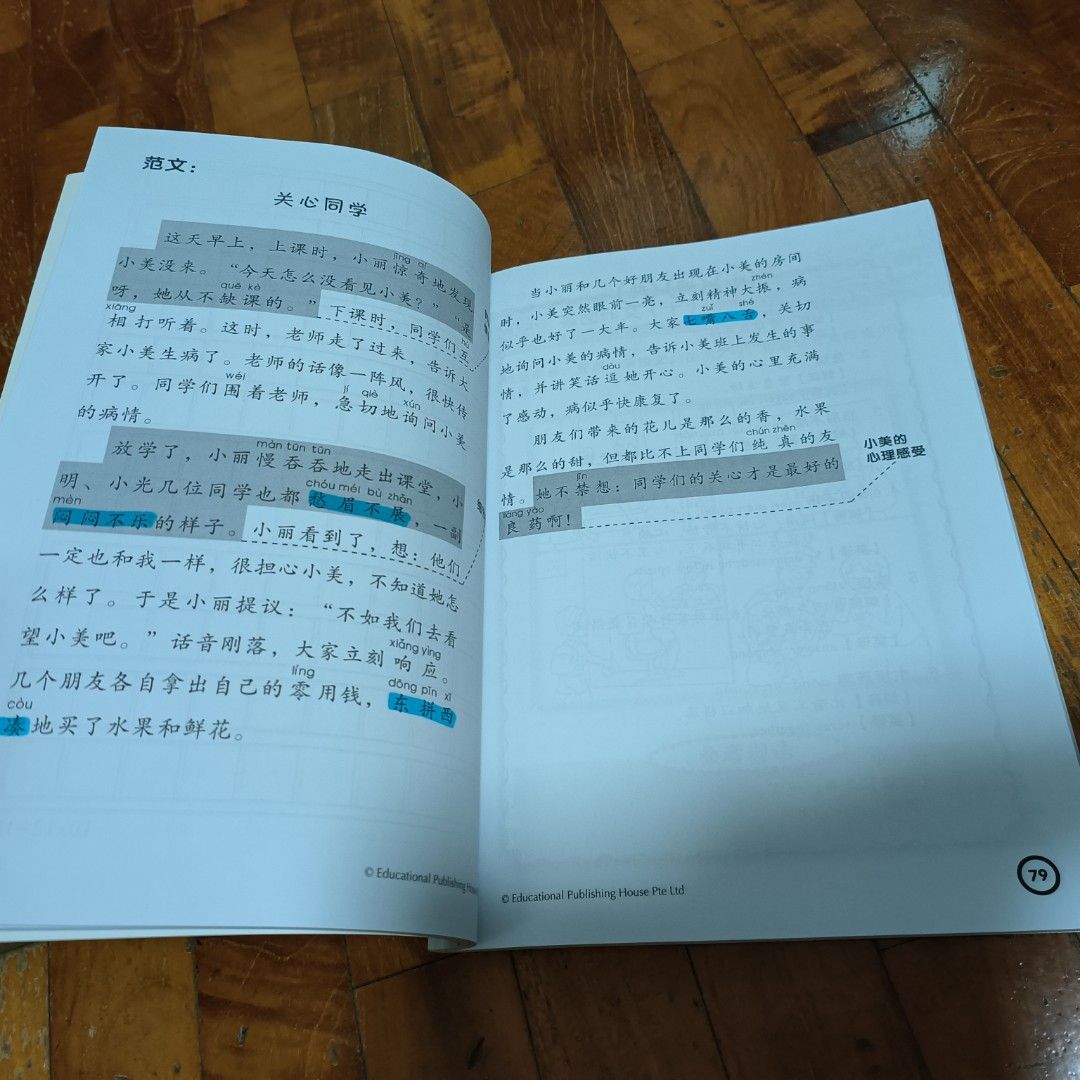 范文：
关心同学
这天早上，上课时，小丽惊奇地发现
jīng qí
小美没来。“今天怎么没看见小美？”“是
呀，她从不缺课的。”下课时，同学们互
quē kè
hù
相打听着。这时，老师走了过来，告诉大
xiāng
家小美生病了。老师的话像一阵风，很快传
开了。同学们围着老师，急切地询问小美
wéi
jí qiè
xún
的病情。
放学了，小丽慢吞吞地走出课堂，小
màn tūn tūn
明、小光几位同学也都愁眉不展，一副
chóu méi bù zhǎn
闷闷不乐的样子。小丽看到了，想：他们
mèn
一定也和我一样，很担心小美，不知道她怎
么样了。于是小丽提议：“不如我们去看
望小美吧。”话音刚落，大家立刻响应。
xiǎng yìng
几个朋友各自拿出自己的零用钱，东拼西
líng
dōng pīn xī
凑地买了水果和鲜花。
còu
© Educational Publishing House
当小丽和几个好朋友出现在小美的房间
时，小美突然眼前一亮，立刻精神大振，病
zhèn
似乎也好了一大半。大家七嘴八舌，关切
zuǐ
shé
地询问小美的病情，告诉小美班上发生的事
情，并讲笑话逗她开心。小美的心里充满
dòu
了感动，病似乎快康复了。
朋友们带来的花儿是那么的香，水果
是那么的甜，但都比不上同学们纯真的友
chún zhēn
情。她不禁想：同学们的关心才是最好的
jīn
良药啊！
liáng yào
小美的
心理感受
© Educational Publishing House Pte Ltd
79